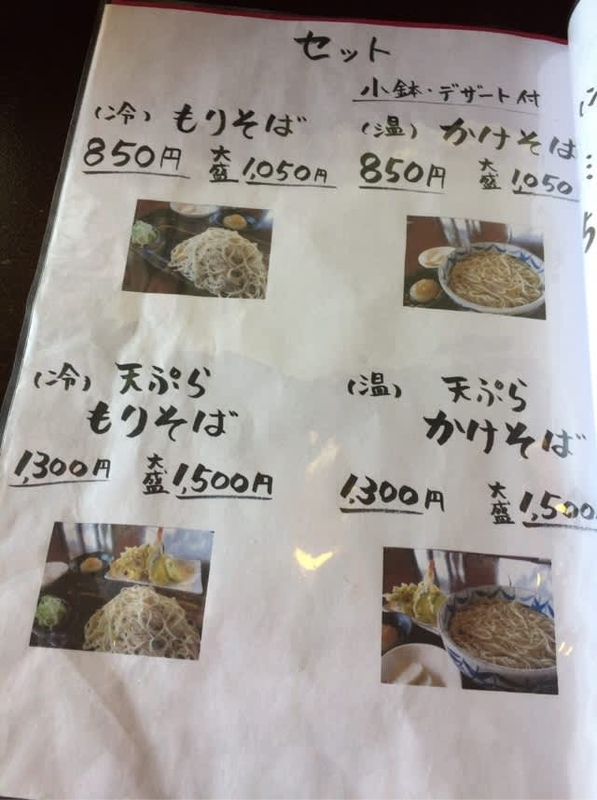 セット
小鉢・デザート付
(冷) もりそば
850円 大盛 1,050円
(温) かけそば
850円 大盛 1,050
(冷) 天ぷら
もりそば
1,300円 大盛 1,500円
(温) 天ぷら
かけそば
1,300円 大盛 1,500